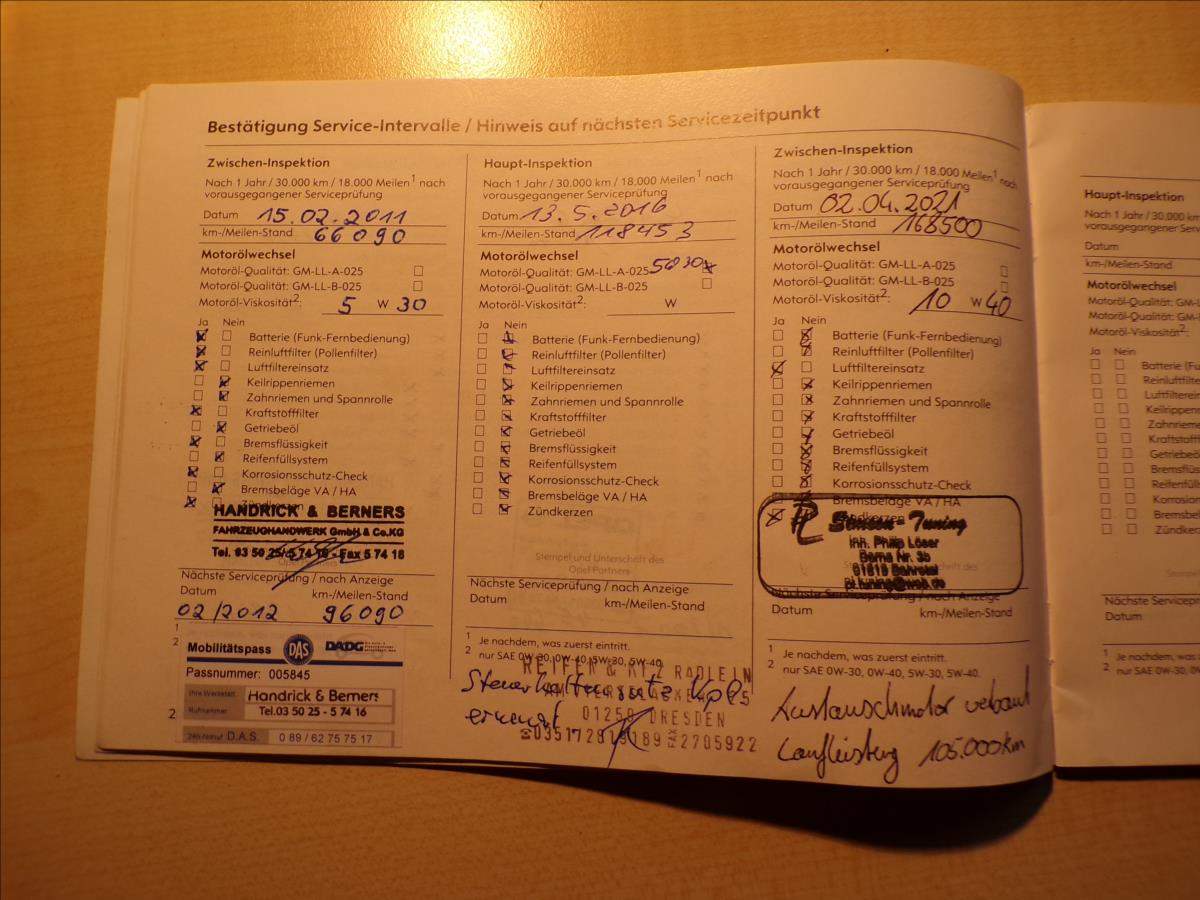 Bestätigung Service-Intervalle / Hinweis auf nächsten Servicezeitpunkt
Zwischen-Inspektion
Nach 1 Jahr / 30.000 km / 18.000 Meilen¹ nach
vorausgegangener Serviceprüfung
Datum 15.02.2011
km-/Meilen-Stand 66090
Motorölwechsel
Motoröl-Qualität: GM-LL-A-025
Motoröl-Qualität: GM-LL-B-025
Motoröl-Viskosität²: 5 W 30
Ja Nein
Batterie (Funk-Fernbedienung)
Reinluftfilter (Pollenfilter)
Luftfiltereinsatz
Keilrippenriemen
Zahnriemen und Spannrolle
Kraftstofffilter
Getriebeöl
Bremsflüssigkeit
Reifenfüllsystem
Korrosionsschutz-Check
Bremsbeläge VA / HA
Zündkerzen
HANDRICK & BERNERS
FAHRZEUGHANDWERK GmbH & Co.KG
Tel. 03 50 25/5 74 16 - Fax 5 74 18
Nächste Serviceprüfung / nach Anzeige
Datum km-/Meilen-Stand
02/2012 96090
1
2
Mobilitätspass DAS DADG
Passnummer: 005845
Ihre Werkstatt Handrick & Berners
Rufnummer Tel.03 50 25 - 5 74 16
2
24h-Notruf D.A.S. 0 89 / 62 75 75 17
Haupt-Inspektion
Nach 1 Jahr / 30.000 km / 18.000 Meilen¹ nach
vorausgegangener Serviceprüfung
Datum 13.5.2016
km-/Meilen-Stand 118453
Motorölwechsel
Motoröl-Qualität: GM-LL-A-025 5W30
Motoröl-Qualität: GM-LL-B-025
Motoröl-Viskosität²: W
Ja Nein
Batterie (Funk-Fernbedienung)
Reinluftfilter (Pollenfilter)
Luftfiltereinsatz
Keilrippenriemen
Zahnriemen und Spannrolle
Kraftstofffilter
Getriebeöl
Bremsflüssigkeit
Reifenfüllsystem
Korrosionsschutz-Check
Bremsbeläge VA / HA
Zündkerzen
Stempel und Unterschrift des
Opel Partners
Nächste Serviceprüfung / nach Anzeige
Datum km-/Meilen-Stand
1 Je nachdem, was zuerst eintritt.
2 nur SAE 0W-30, 0W-40, 5W-30, 5W-40.
REIFEN & KFZ RADLEIN
Steuerkettensatz kpl
erneut
01259 DRESDEN
2705922
Zwischen-Inspektion
Nach 1 Jahr / 30.000 km / 18.000 Meilen¹ nach
vorausgegangener Serviceprüfung
Datum 02.04.2021
km-/Meilen-Stand 168500
Motorölwechsel
Motoröl-Qualität: GM-LL-A-025
Motoröl-Qualität: GM-LL-B-025
Motoröl-Viskosität²: 10 W 40
Ja Nein
Batterie (Funk-Fernbedienung)
Reinluftfilter (Pollenfilter)
Luftfiltereinsatz
Keilrippenriemen
Zahnriemen und Spannrolle
Kraftstofffilter
Getriebeöl
Bremsflüssigkeit
Reifenfüllsystem
Korrosionsschutz-Check
Bremsbeläge VA / HA
Zündkerzen
Simson Tuning
Inh. Philip Löser
Borna Nr. 3b
01819 Bahretal
pl.tuning@web.de
Nächste Serviceprüfung / nach Anzeige
Datum km-/Meilen-Stand
1 Je nachdem, was zuerst eintritt.
2 nur SAE 0W-30, 0W-40, 5W-30, 5W-40.
Austauschmotor verbaut
Laufleistung 105.000km
Haupt-Inspektion
Nach 1 Jahr / 30.000 km
vorausgegangener Serv
Datum
km-/Meilen-Stand
Motorölwechsel
Motoröl-Qualität: GM-LL-
Motoröl-Qualität: GM-L
Motoröl-Viskosität²:
Ja Nein
Batterie (Fu
Reinluftfilte
Luftfilterein
Keilrippen
Zahnrieme
Kraftstoff
Getriebeö
Bremsflüs
Reifenfüll
Korrosion
Bremsbe
Zündker
Nächste Servicep
Datum
1 Je nachdem, was
2 nur SAE 0W-30, 0